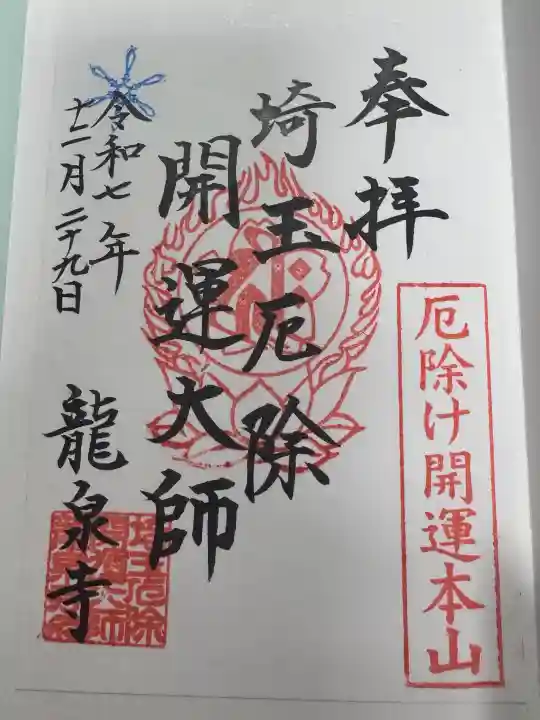 奉拝
厄除け開運本山
埼玉厄除
開運大師
令和七年
十二月二十九日
龍泉寺